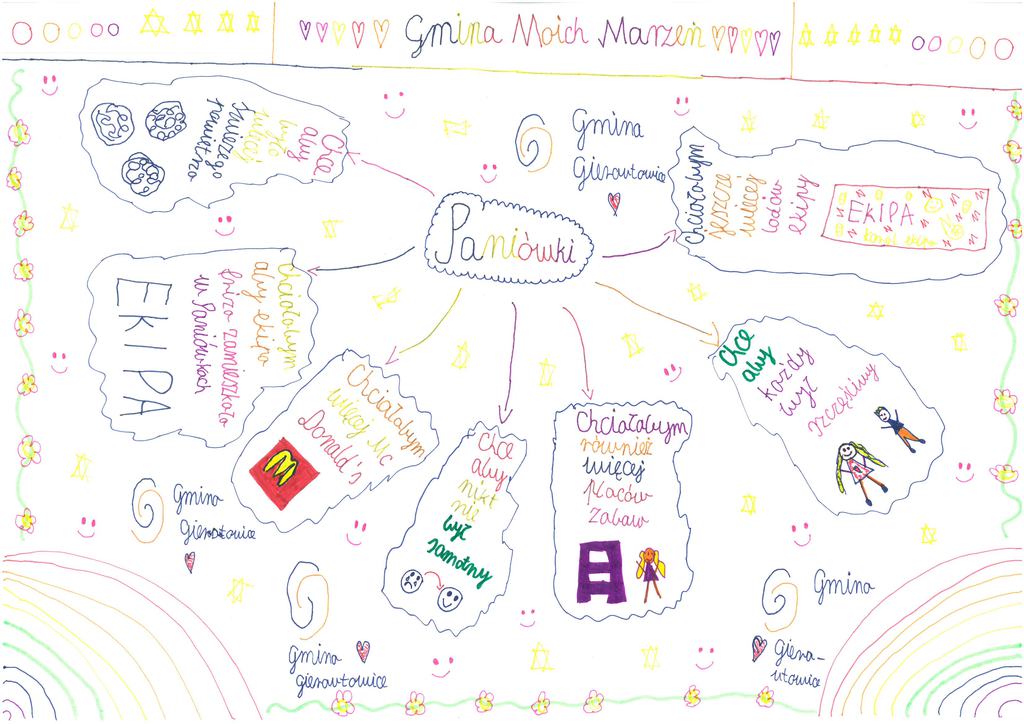 Gmina Moich Marzeń
Chce
aby
było
więcej
świeżego
powietrza
Gmina
Gierałtowice
Chciałabym
jeszcze
więcej
lodów
ekipy
EKIPA
Paniówki
Chciałabym
aby ekipa
zamieszkała
w Paniówkach
EKIPA
Chciałabym
więcej Mc
Donald's
Chce
aby
nikt
nie
był
samotny
Chciałabym
również
więcej
placów
zabaw
Chce
aby
każdy
był
szczęśliwy
Gmina
Gierałtowice
Gmina
Gierałtowice
Gmina
Giera-
łtowice